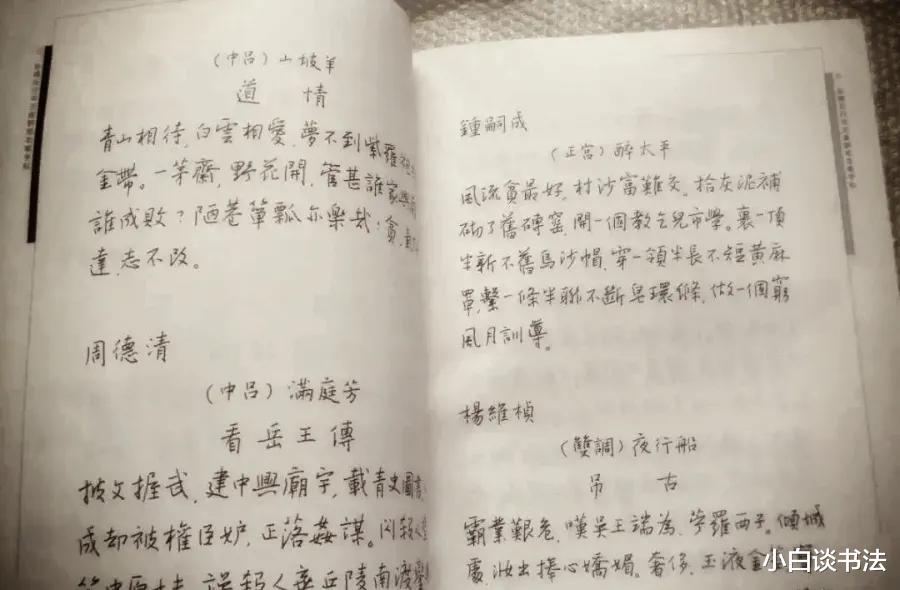 （中呂）山坡羊
道 情
青山相待，白雲相愛，夢不到紫羅袍
金帶。一茅齋，野花開，管甚誰家興
誰成敗？陋巷簞瓢亦樂哉！貧，氣
達，志不改。
周德清
（中呂）滿庭芳
看岳王傳
披文握武，建中興廟宇，載青史圖書
成却被權臣妒，正落姦謀。閃殺人
誤殺人棄丘陵南渡
鍾嗣成
（正宮）醉太平
風流貧最好，村沙富難交。拾灰泥補
砌了舊磚窰，開一個教乞兒市學。裹一頂
半新不舊烏沙帽，穿一領半長不短黃麻
罩，繫一條半聯不斷皂環縧，做一個窮
風月訓導。
楊維楨
（雙調）夜行船
吊 古
霸業艱危，嘆吳王端為，苧羅西子。傾城
處，妝出捧心嬌媚。奢侈，玉液金
小白谈书法